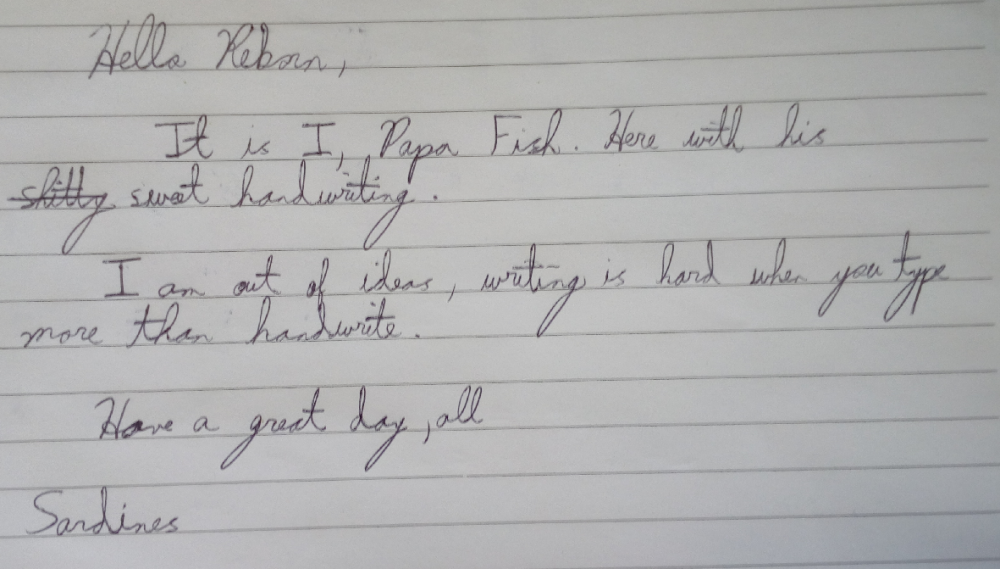 Hello Reborn,
It is I, Papa Fish. Here with his
~~shitty~~ sweet handwriting.
I am out of ideas, writing is hard when you type
more than handwrite.
Have a great day, all
Sardines